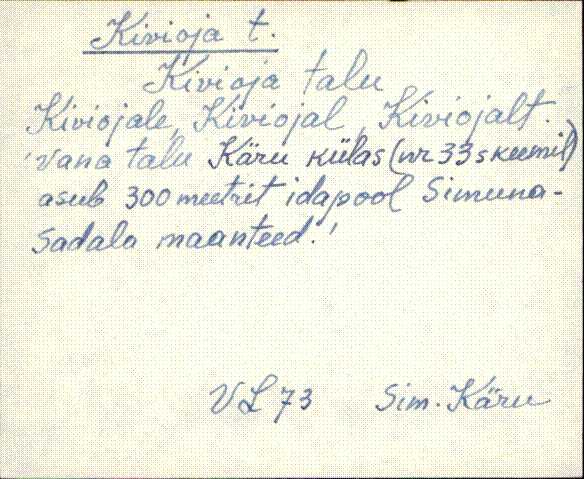 Kivioja t.
Kivioja talu
Kiviojale, Kiviojal, Kiviojalt.
'vana talu Käru külas (nr 33 skeemil)
asub 300 meetrit idapool Simuna-
Sadala maanteed.'
VL 73 Sim. Käru